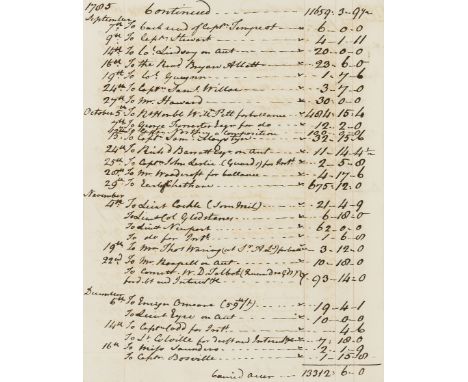 1785 Continued 11659-3-9 1/2
September
7th To back end of Captn Tempest 6-0-0
9th To Captn Stewart 4-1-11
14th To Col Lindsay on acct 20-0-0
16th To the Revd Bryan Allott 23-6-0
19th To Col Gwynn 1-7-6
24th To Captn Saml Willoe 3-7-0
27th To Mr Howard 30-0-0
October 5th To Rt Honble Wm Pitt for ballance 484-15-4
7th To George Forrester Esqr for do 12-2-0
composition
13
24th To Richd Barrett Esqr on acct 11-14-4 1/2
25th To Captn John Leslie (Guards) for Intt 2-5-8
28th To Mr Woodcroft for ballance 4-17-6
29th To Earl Chatham 675-12-0
November
4th To Lieut Cockle (Ion Mil) 21-4-9
To Lieut Col Gledstanes 6-18-0
To Lieut Newport 62-0-0
To do for Intt 1-6-8
19th To Mr Thos Waring 3-12-0
22nd To Mr Keapell on acct 10-18-0
To Cornet W. D. Talbot
and Interest 93-14-0
December
6th To Ensign Omeara (59th ft) 19-4-1
To Lieut Eyre on acct 10-0-0
14th To Captn Ladd for Intt 4-6
To Lt Colville for and Interest 7-18-0
16th To Miss Saunders 2-1-9
To Captn Bosville 1-15-8
Carried over 13312-6-0